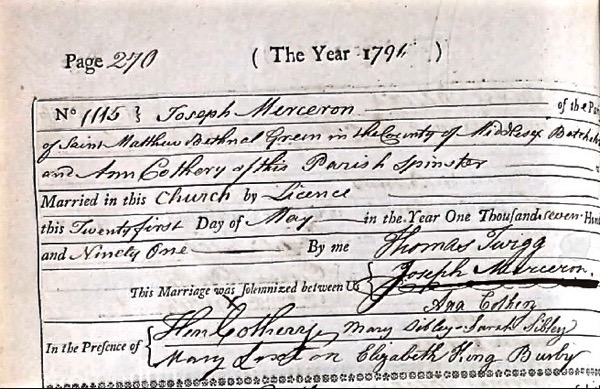 Page 270 ( The Year 1791 )
No 1115 } Joseph Merceron of the Par
of Saint Matthew Bethnal Green in the County of Middlesex Batchel
and Ann Cothery of this Parish Spinster
Married in this Church by Licence
this Twenty first Day of May in the Year One Thousand seven Hund
and Ninety One By me Thomas Twigg
This Marriage was solemnized between Us { Joseph Merceron.
Ann
In the Presence of { Cotherry Mary Sibley Sarah Sibley
Mary Elizabeth King Busby